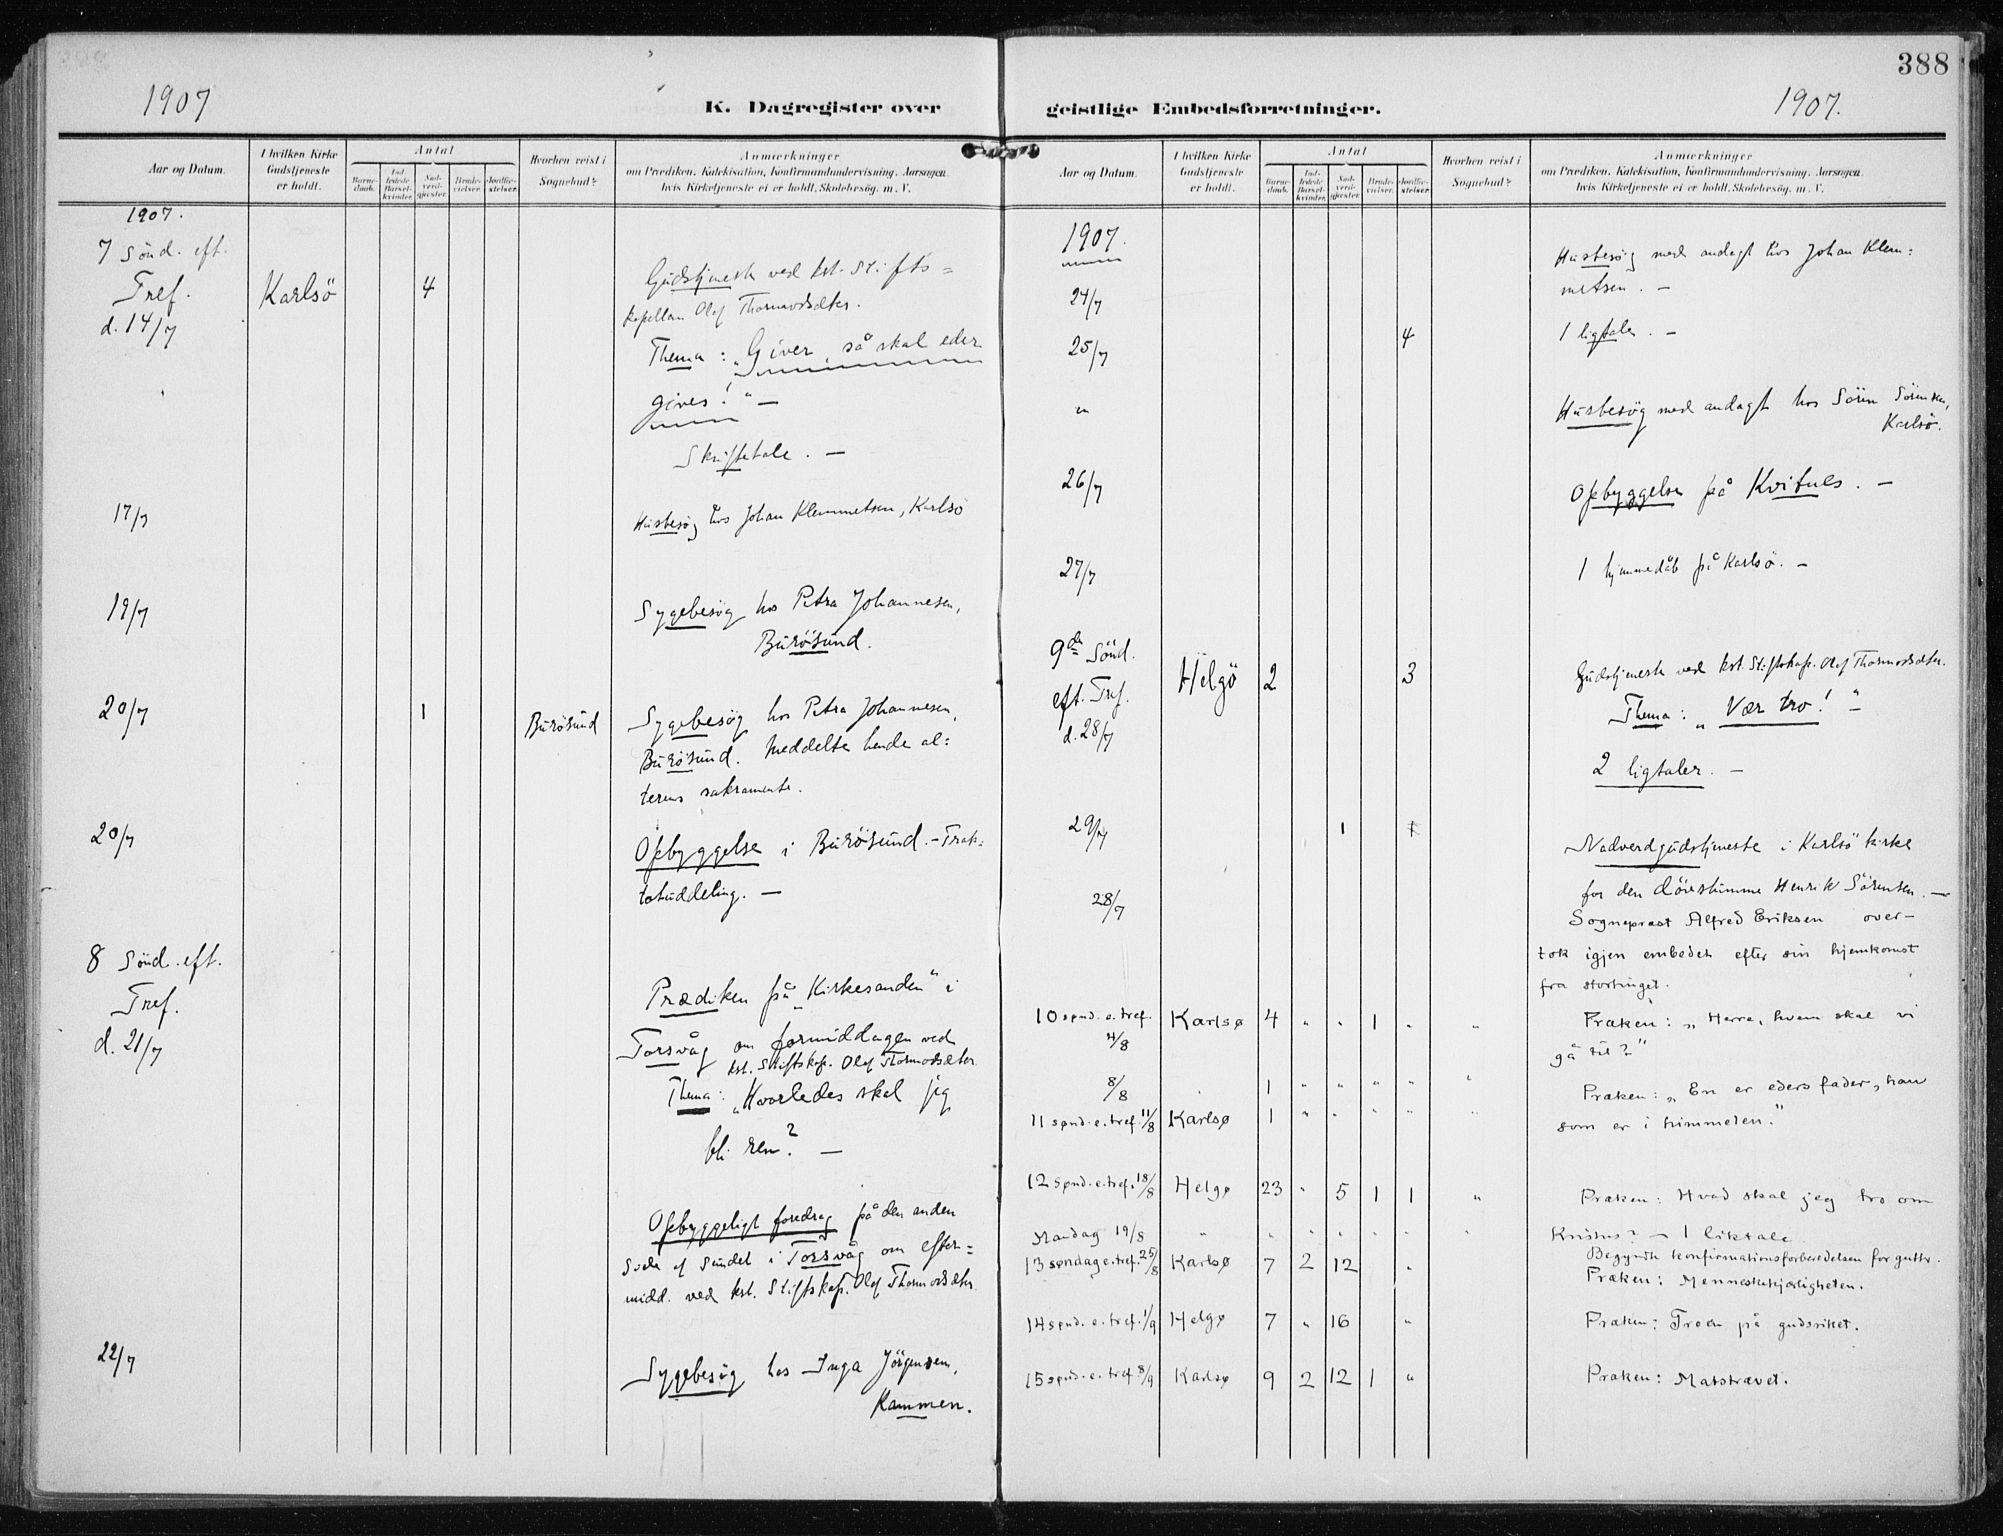 388
1907
K. Dagregister over
geistlige Embedsforretninger.
1907.
Aar og Datum.
I hvilken Kirke Gudstjeneste er holdt.
Antal
Barnedaab.
Indledede Barselkvinder.
Nadverdgjester.
Brudevielser.
Jordfæstelser.
Hvorhen reist i Sognebud?
Anmærkninger
om Prædiken, Katekisation, Konfirmandundervisning. Aarsagen,
hvis Kirketjeneste ei er holdt. Skolebesøg. m. V.
1907.
7 Sönd. eft.
Tref.
d. 14/7
Karlsö
4
Gudstjeneste ved kst. Stifts=
kapellan Olof Thormodsæter.
Thema: „Giver, så skal eder
gives!“ —
Skriftetale. —
17/7
Husbesög hos Johan Klemmetsen, Karlsö
19/7
Sygebesög hos Petra Johannesen,
Burösund.
20/7
1
Burösund
Sygebesög hos Petra Johannesen,
Burösund. Meddelte hende al:
terens sakramente.
20/7
Opbyggelse i Burösund. – Trak=
tatuddeling. —
8 Sönd. eft.
Tref.
d. 21/7
Prædiken på „Kirkesanden“ i
Torsvåg om formiddagen ved
kst. Stiftskap. Olof Thormodsæter
Thema: „Hvorledes skal jeg
bli ren? —
Opbyggeligt foredrag på den anden
side af sundet i Torsvåg om efter=
midd. ved kst. Stiftskap. Olof Thormodsæter
22/7
Sygebesög hos Inga Jörgensen,
Kammen.
Aar og Datum.
I hvilken Kirke Gudstjeneste er holdt.
Antal
Barnedaab.
Indledede Barselkvinder.
Nadverdgjester.
Brudevielser.
Jordfæstelser.
Hvorhen reist i Sognebud?
Anmærkninger
om Prædiken, Katekisation, Konfirmandundervisning. Aarsagen,
hvis Kirketjeneste ei er holdt. Skolebesøg. m. V.
1907.
24/7
Husbesög med andagt hos Johan Klem:
metsen. —
25/7
4
1 ligtale. —
"
Husbesög med andagt hos Sören Sörensen,
Karlsö.
26/7
Opbyggelse på Kvitnes. —
27/7
1 hjemmedåb på Karlsö. —
9de Sönd.
eft. Tref.
d. 28/7
Helgö
2
3
Gudstjeneste ved kst. Stiftskap. Olof Thormodsæter.
Thema: „Vær tro!“ —
2 ligtaler. —
29/7
1
Nadverdgudstjeneste i Karlsö kirke
for den dövstumme Henrik Sörensen. —
28/7
Sogneprest Alfred Eriksen over-
tok igjen embedet efter sin hjemkomst
fra stortinget.
10 sønd. e. tref. 4/8 Karlsø 4 " " 1 " " Præken: „Herre, hvem skal vi
gå til?“
8/8 1 " " " " " Præken: „En er eders fader, han
11 sønd. e. tref. 11/8 Karlsø 1 " " " " " som er i himmelen.“
12 sønd. e. tref. 18/8 Helgø 23 " 5 1 1 " Præken: Hvad skal jeg tro om
Kristus? — 1 liktale
Mandag 19/8 " " " " " " " Begyndte konfirmationsforberedelsen for gutter.
13 søndag e. tref. 25/8 Karlsø 7 2 12 " Præken: Menneskekjærligheten.
14 sønd. e. tref. 1/9 Helgø 7 " 16 " Præken: Troen på gudsriket.
15 sønd. e. tref. 8/9 Karlsø 9 2 12 1 " Præken: Matstrævet.